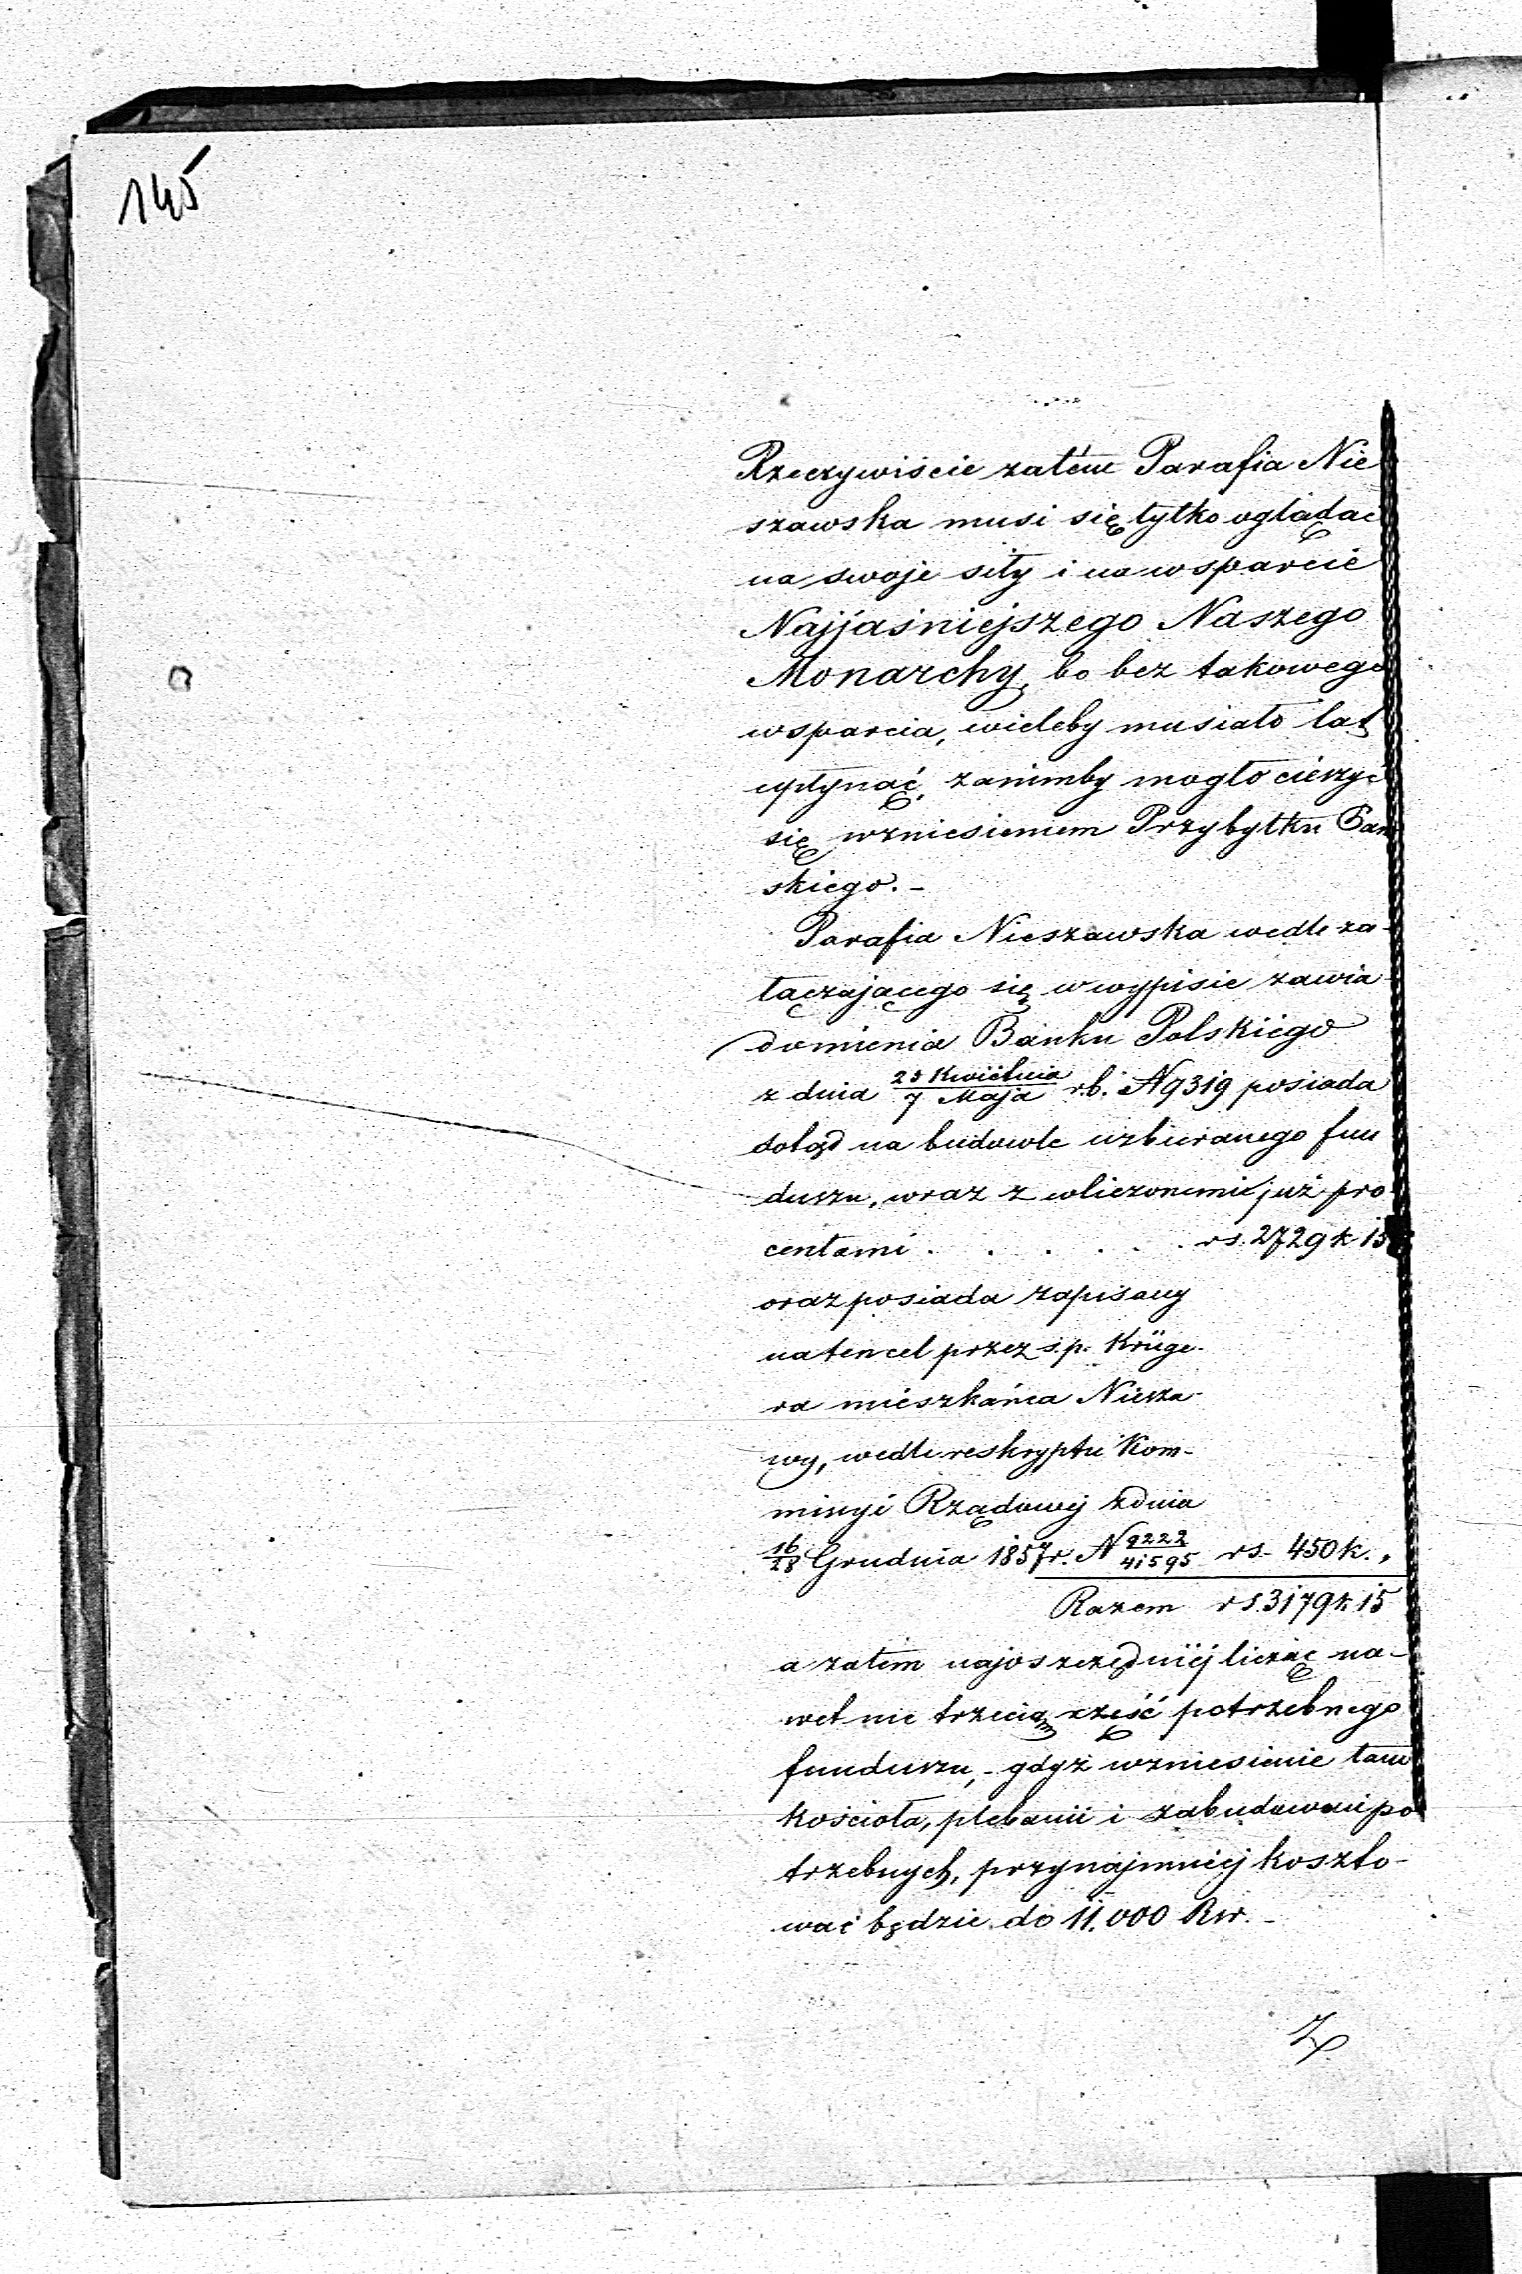 145
Rzeczywiście zatém Parafia Nie
szawska musi się tylko oglądać
na swoje siły i na wsparcie
Najjaśniejszego Naszego
Monarchy, bo bez takowego
wsparcia, wieleby musiało lat
upłynąć, zanimby mogło cieszyć
się wzniesieniem Przybytku Pań
skiego. -
Parafia Nieszawska wedle za-
łączającego się w wypisie zawia-
domienia Banku Polskiego
z dnia 25 Kwietnia / 7 Maja r.b. N 9319 posiada
dotąd na budowle uzbieranego fun
duszu, wraz z wliczonemi już pro
centami . . . . . . rs. 2729 k 15
oraz posiada zapisany
na ten cel przez s.p. Krüge-
ra mieszkańca Niesza-
wy, wedle reskryptu Kom-
missyi Rządowéj z dnia
16/28 Grudnia 1857 r. N 9222/41595 rs. 450 k. „
Razem rs. 3179 k. 15
a zatém najoszczędniéj licząc na-
wet nie trzecią część potrzebnego
funduszu, - gdyż wzniesienie tam
kościoła, plebanii i zabudowań po
trzebnych, przynajmniéj koszto-
wać będzie do 11.000 Rsr. -